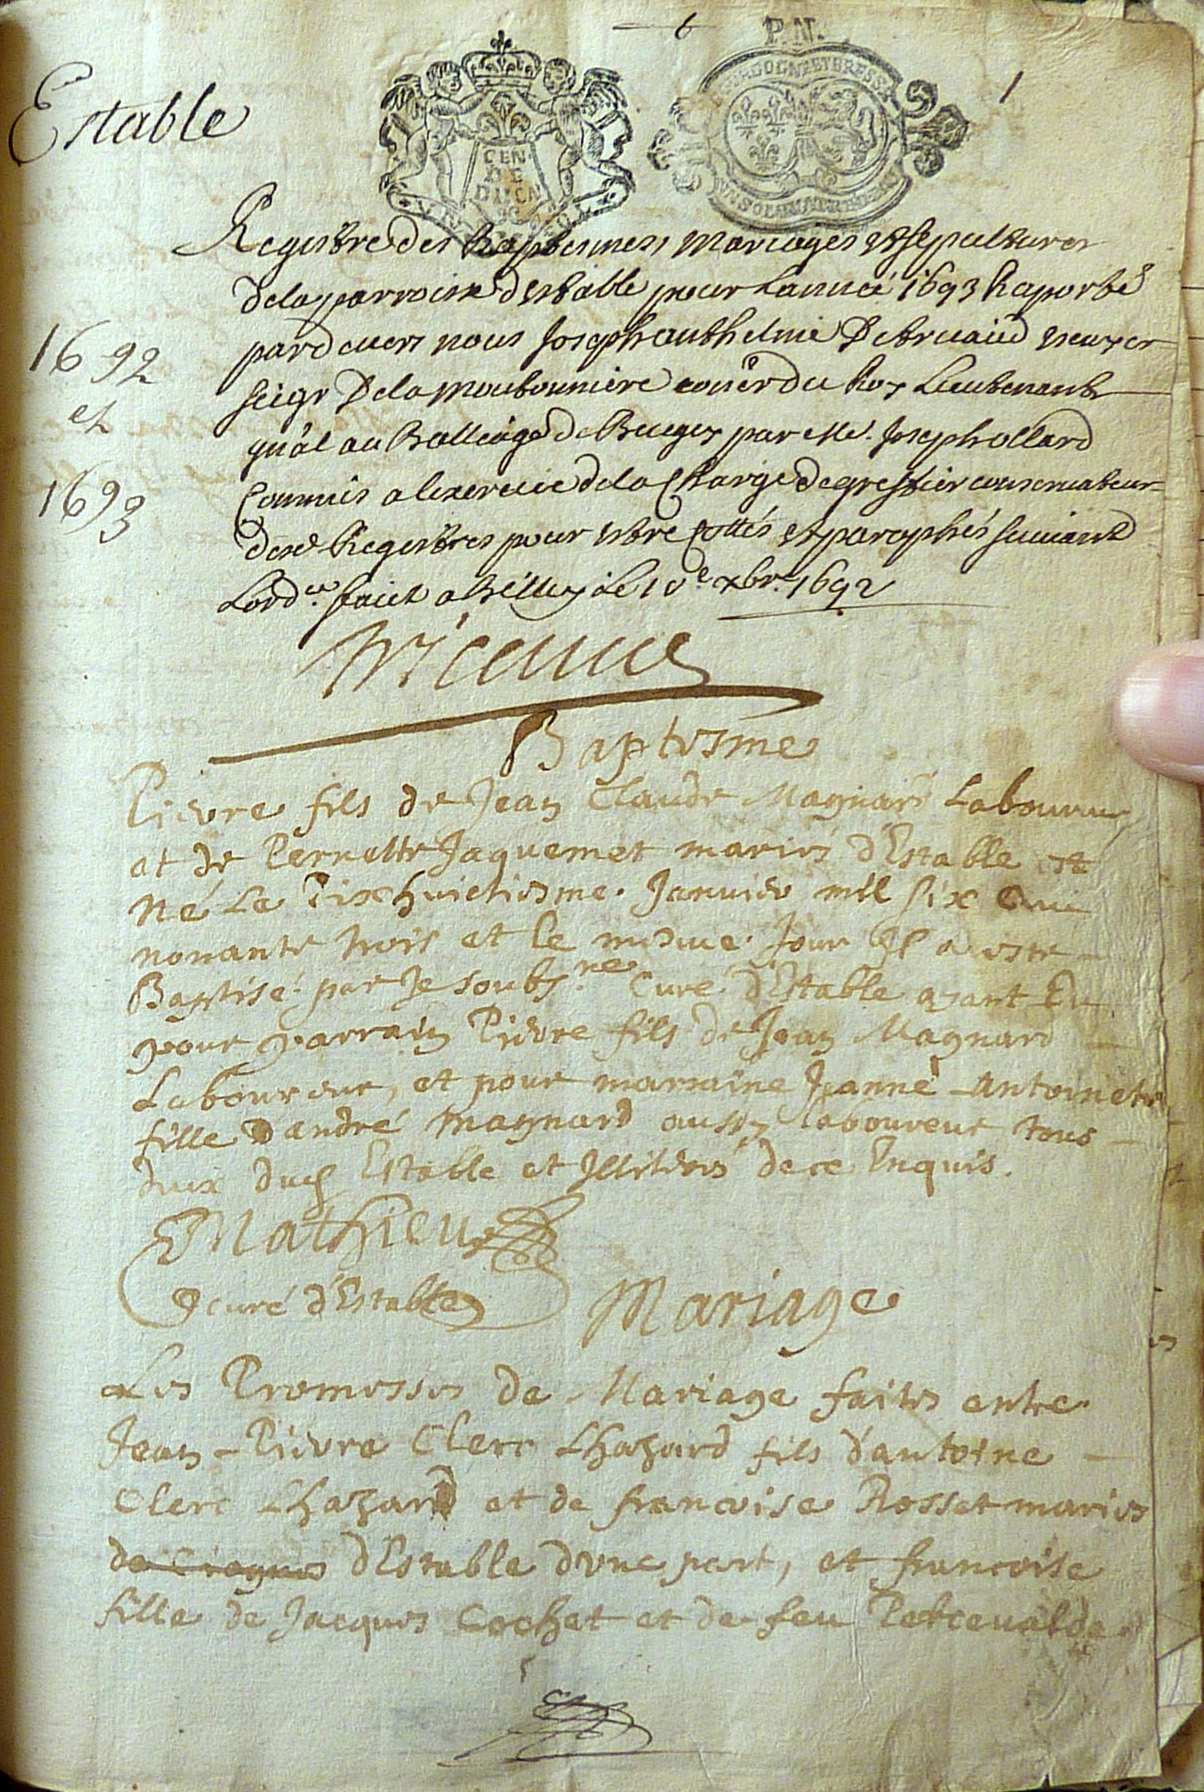 6
P.N.
1
Estable
BOURGOGNE ET BRESSE
GEN
DE
VN SOL
Registre des Baptesmes Mariages et sepultures
de la parroisse d'estable pour Lannée 1693 Raporté
pardevers nous Joseph anthelme Escuyer
1692
seigr De la conser du Roy Lieutenant
et
gnãl au Balliage de Bugey par Me. Joseph ollard
1693
Commis a lexercice de la Charge de greffier conservateur
desd Registres pour estre Cottés et paraphés suivant
Lordce. faict a Belley le 10e xbre. 1692
Baptesme
Pierre fils de Jean Claude Magnard Laboureur
et de Pernette Jaquemet mariés d'Estable est
Né Le Dixhuictiesme Janvier mil six Cent
nonante trois et le mesme jour Il a esté
Baptisé par Je soubsné Curé d'Estable ayant Eu
pour parrain Pierre fils de Jean Magnard
Laboureur, et pour marraine Jeanne Antoinette
fille D'andré Magnard aussy laboureur tous
deux dud Estable et Illiterés de ce Enquis.
Mathieu
curé d'Estable
Mariage
Les Promesses de Mariage faites entre
Jean-Pierre Clerc Lhazard fils d'antoine
Clerc Lhazard et de francoise Rosset mariés
d'Estable d'vne part, et francoise
fille de Jacques Cochet et de feu